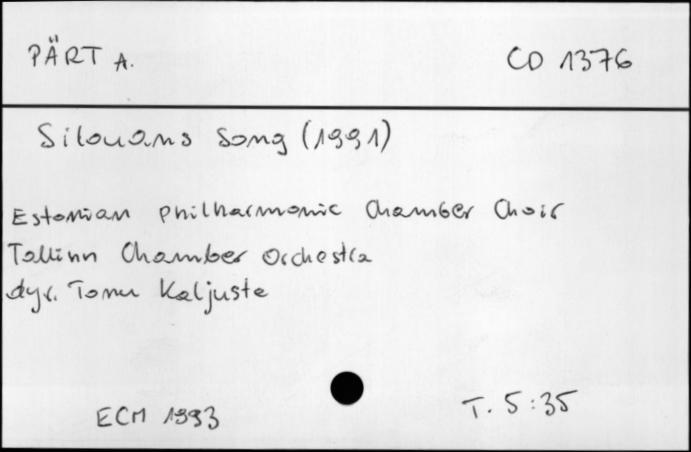 PÄRT A. CD 1376
Silouans Song (1991)
Estonian Philharmonic Chamber Choir
Tallinn Chamber Orchestra
dyr. Tonu Kaljuste
ECM 1993 T. 5:35